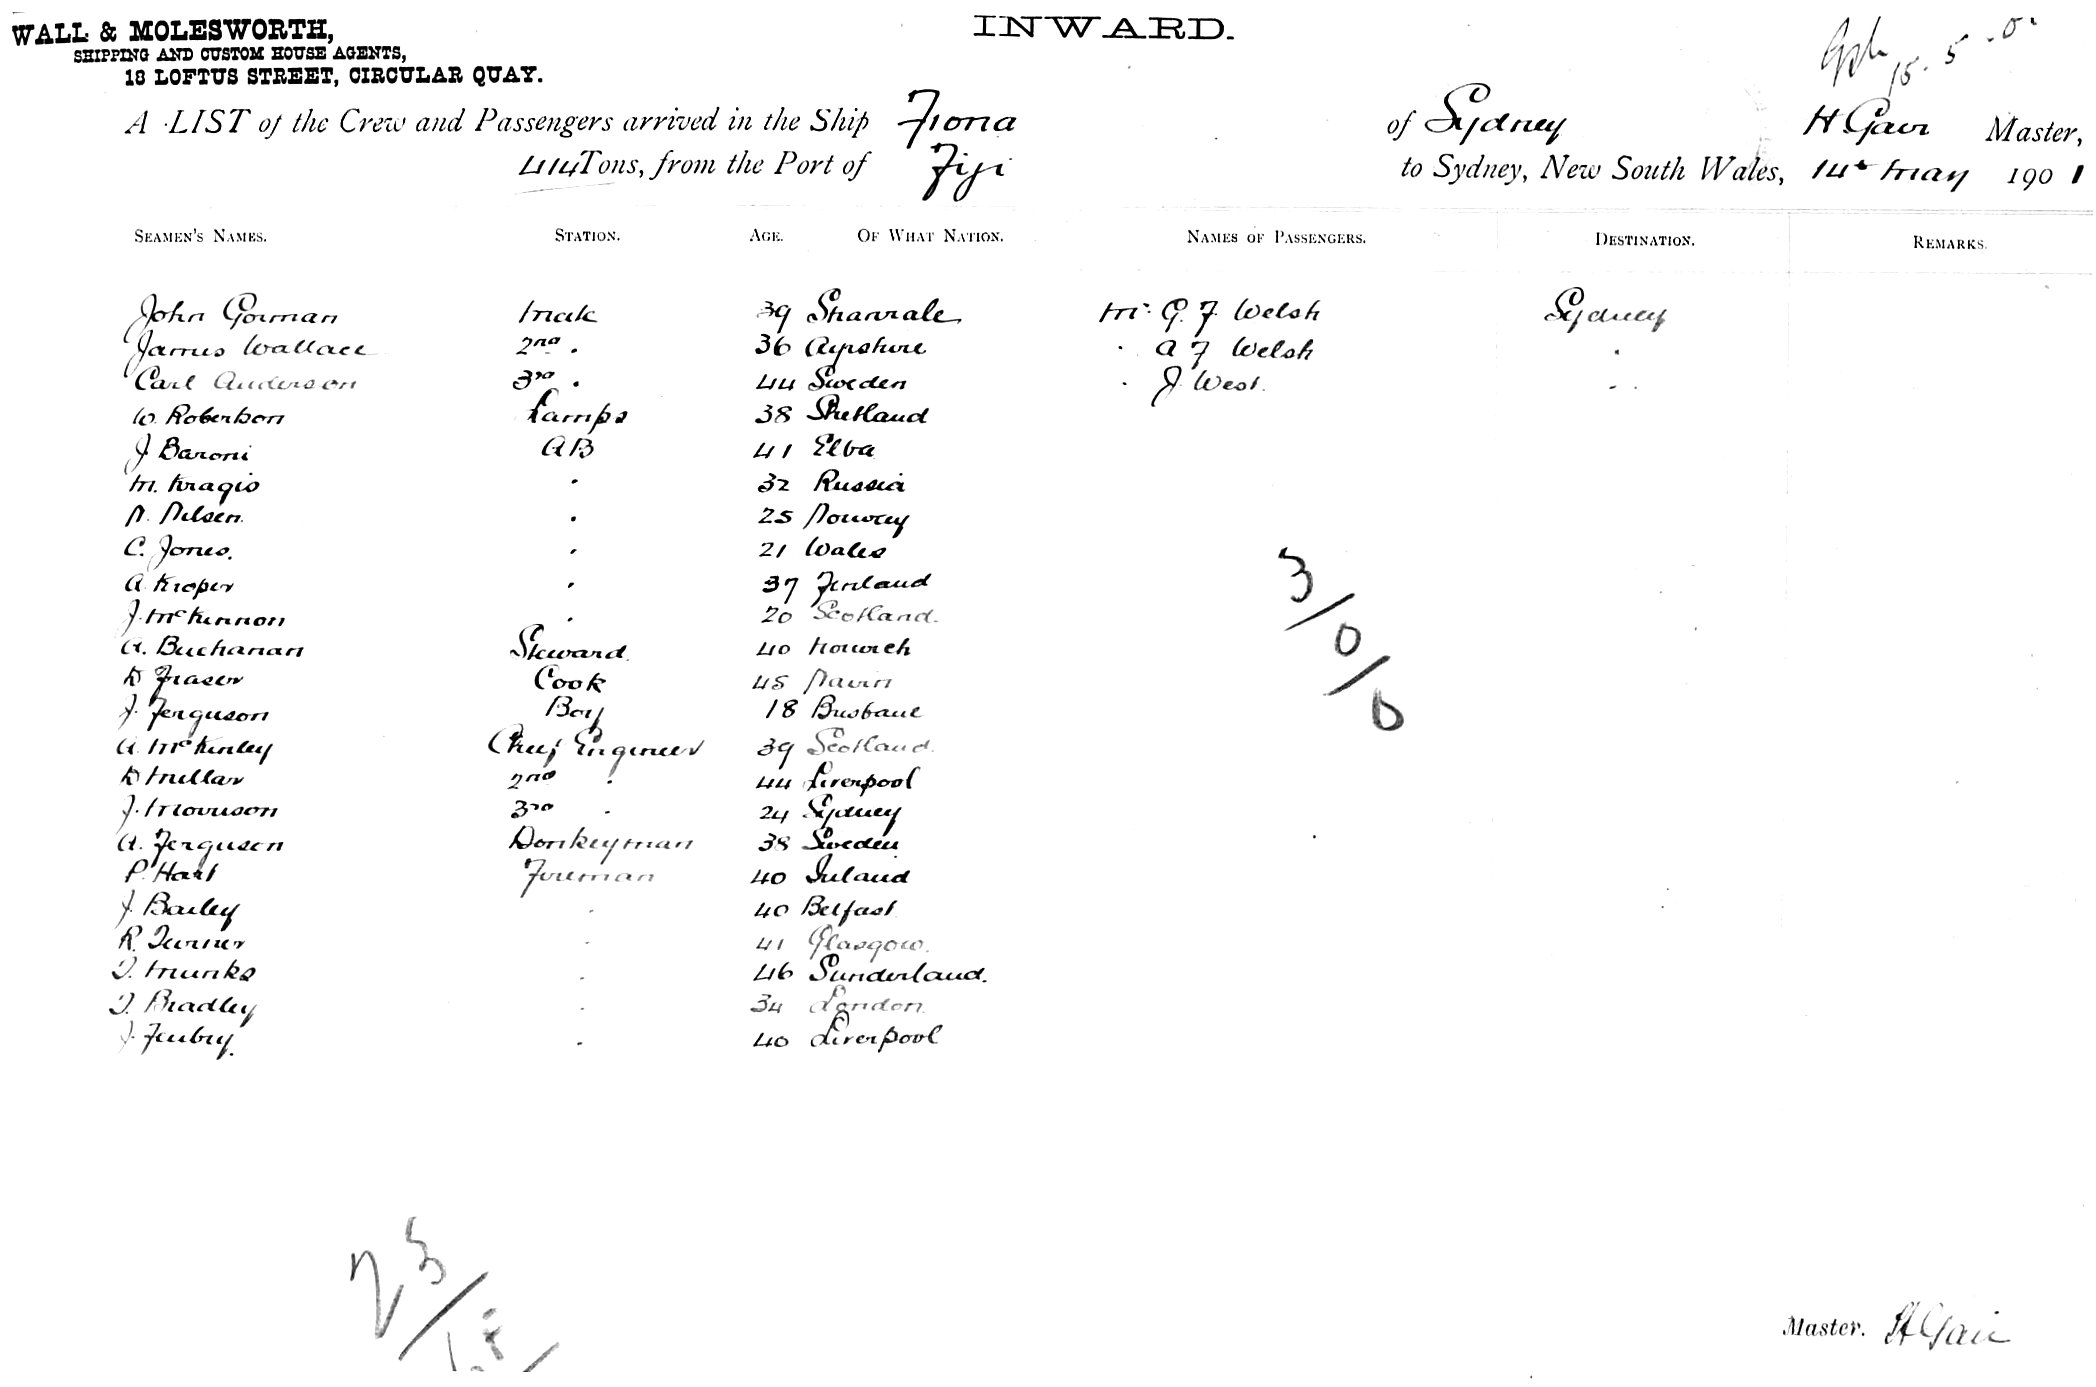 WALL & MOLESWORTH,
SHIPPING AND CUSTOM HOUSE AGENTS,
18 LOFTUS STREET, CIRCULAR QUAY.
INWARD.
15.5.0
A LIST of the Crew and Passengers arrived in the Ship Fiona of Sydney H. Gair Master,
414 Tons, from the Port of Fiji to Sydney, New South Wales, 14th May 1901
SEAMEN'S NAMES. STATION. AGE. OF WHAT NATION. NAMES OF PASSENGERS. DESTINATION. REMARKS.
John Gorman Mate 39 Mr. G. F Welsh Sydney
James Wallace 2nd . 36 Ayrshire . A F Welsh .
Carl Anderson 3rd . 44 Sweden . J West. . .
W. Robertson Lamps 38 Shetland
J Baroni AB 41 Elba
M. Kragis . 32 Russia
N. Nilsen . 25 Norway
C. Jones. . 21 Wales
A. Kroper . 37 Finland
J. McKinnon . 20 Scotland.
A. Buchanan Steward. 40
D Fraser Cook 45 Nairn
J. Ferguson Boy 18 Brisbane
A. McKinley Chief Engineer 39 Scotland.
D Millar 2nd . 44 Liverpool
J. Morrison 3rd . 24 Sydney
A. Ferguson Donkeyman 38 Sweden
P. Hart Fireman 40 Ireland
J. Bailey . 40 Belfast
R. Turner . 41 Glasgow.
T. Munks . 46 Sunderland.
T. Bradley . 34 London
J. . 40 Liverpool
3/0/0
23/
Master. H Gair